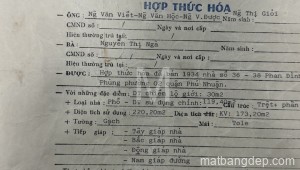 HỢP THỨC HÓA
ÔNG Ng Văn Viết-Ng Văn Học-Ng V.Được Ng Thị Giỏi
Năm sinh :
CMND số : Ngày và nơi cấp
Hiện thường trú tại :
BÀ : Nguyễn Thị Ngà Năm sinh :
CMND số : Ngày và nơi cấp
Hiện thường trú tại
ĐƯỢC : Hợp thức hóa 1934 nhà số 36 - 38 Phan Đình
Phùng phường Phú Nhuận.
Với những đặc lộ giới: 30m2
+ Loại nhà : Phố - Dt sử dụng chính: Cấu trúc Trệt+
+ Diện tích sử dụng 220,20m2 Diện tích đất: KV: 173,20m2
+ Tường : Gạch Mái : Tole
+ Tiếp giáp : - Tây giáp nhà
- Bắc giáp nhà
- Đông giáp nhà
- Nam giáp đường
matbangdep.com